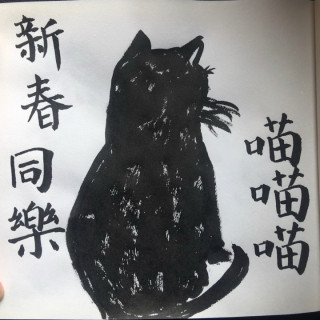 新春同樂
喵喵喵